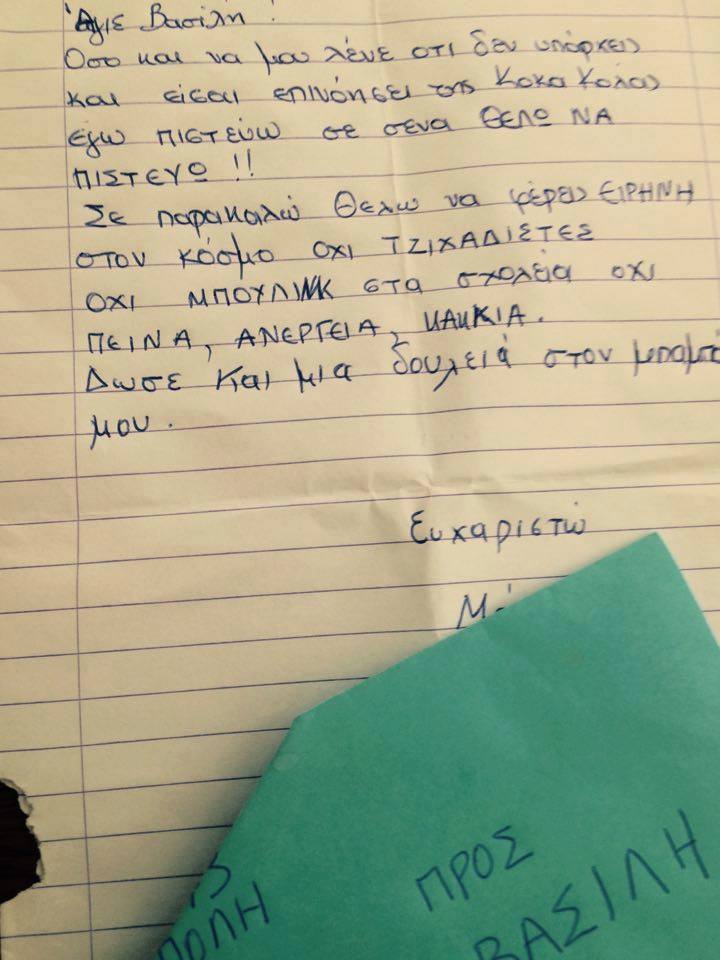 Άγιε Βασίλη!
Όσο και να μου λένε οτι δεν υπάρχεις
και είσαι επινόησει της Κοκα Κολας
έγω πιστεύω σε σενα θελω ΝΑ
ΠΙΣΤΕΥΩ!!
Σε παρακαλώ θελω να φέρεις ΕΙΡΗΝΗ
στον κόσμο οχι ΤΖΙΧΑΔΙΣΤΕΣ
οχι ΜΠΟΥΛΙΝΚ στα σχολεία οχι
ΠΕΙΝΑ, ΑΝΕΡΓΕΙΑ, ΚΑΚΚΙΑ.
Δωσε Και μια δουλειά στον μπαμπά
μου.
Ευχαριστώ
ΠΡΟΣ
ΒΑΣΙΛΗ